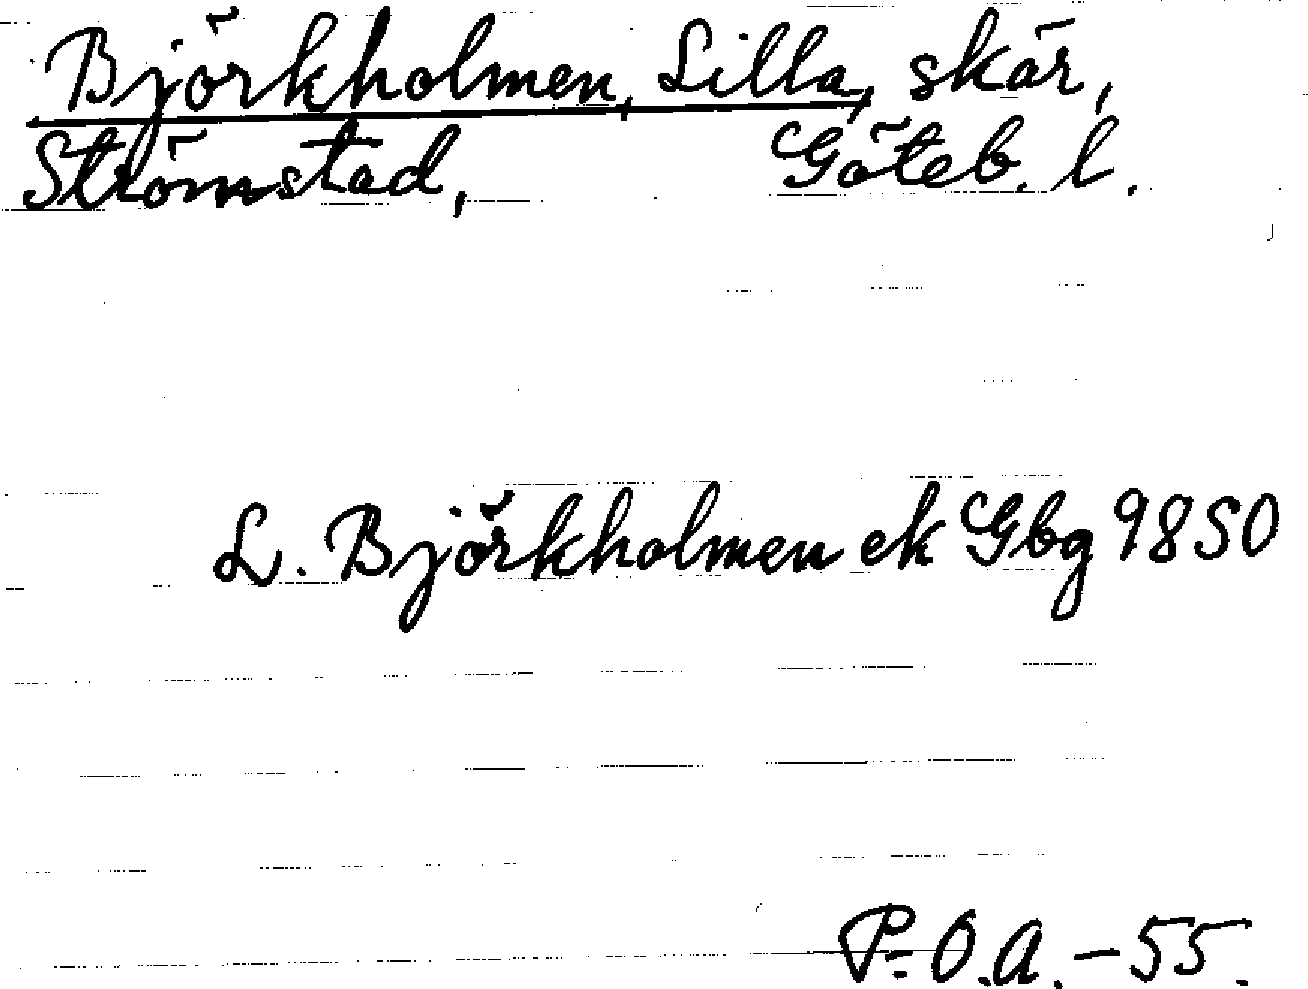 Björkholmen, Lilla, skär,
Strömstad, Göteb. l.
L. Björkholmen ek Gbg 9850
P-O.A.-55.